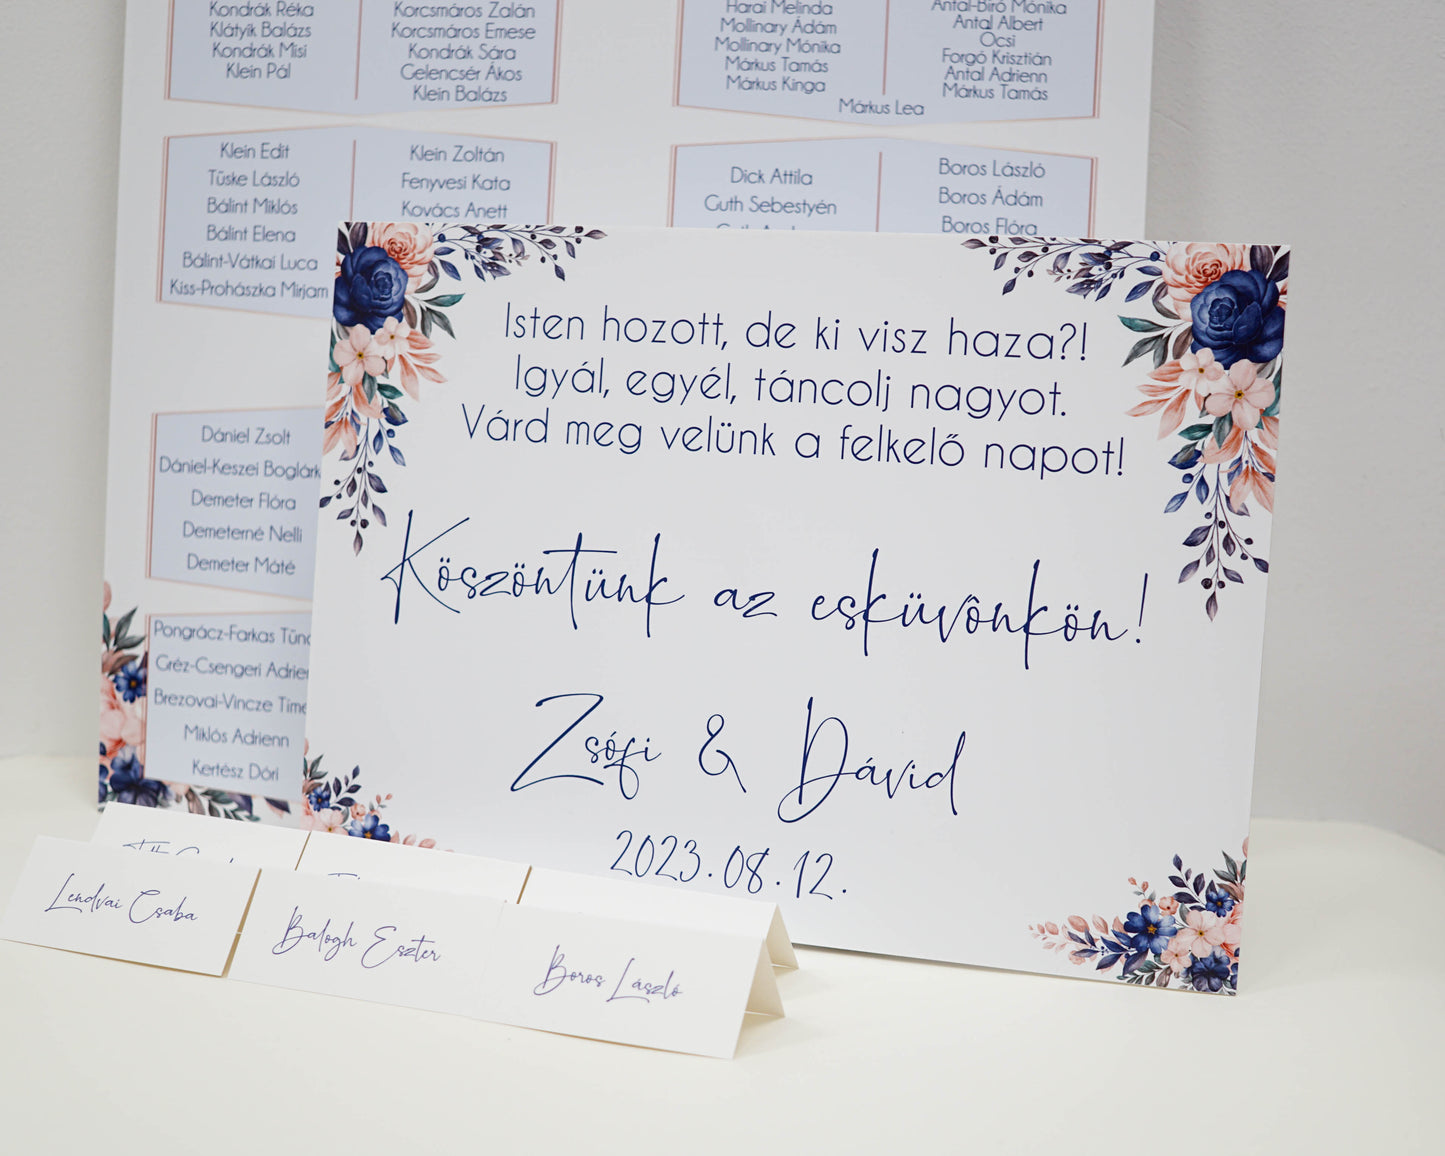 Kondrák Réka
Klátyik Balázs
Kondrák Misi
Klein Pál
Korcsmáros Zalán
Korcsmáros Emese
Kondrák Sára
Gelencsér Ákos
Klein Balázs
Harai Melinda
Mollinary Ádám
Mollinary Mónika
Márkus Tamás
Márkus Kinga
Antal-Bíró Mónika
Antal Albert
Ocsi
Forgó Krisztián
Antal Adrienn
Márkus Tamás
Márkus Lea
Klein Edit
Tüske László
Bálint Miklós
Bálint Elena
Bálint-Vátkai Luca
Kiss-Prohászka Mirjam
Klein Zoltán
Fenyvesi Kata
Kovács Anett
Dick Attila
Guth Sebestyén
Boros László
Boros Ádám
Boros Flóra
Dániel Zsolt
Dániel-Keszei Boglárk
Demeter Flóra
Demeterné Nelli
Demeter Máté
Pongrácz-Farkas Tünd
Gréz-Csengeri Adrien
Brezovai-Vincze Time
Miklós Adrienn
Kertész Dóri
Isten hozott, de ki visz haza?!
Igyál, egyél, táncolj nagyot.
Várd meg velünk a felkelő napot!
Köszöntünk az esküvônkön!
Zsófi & Dávid
2023.08.12.
Lendvai Csaba
Balogh Eszter
Boros László